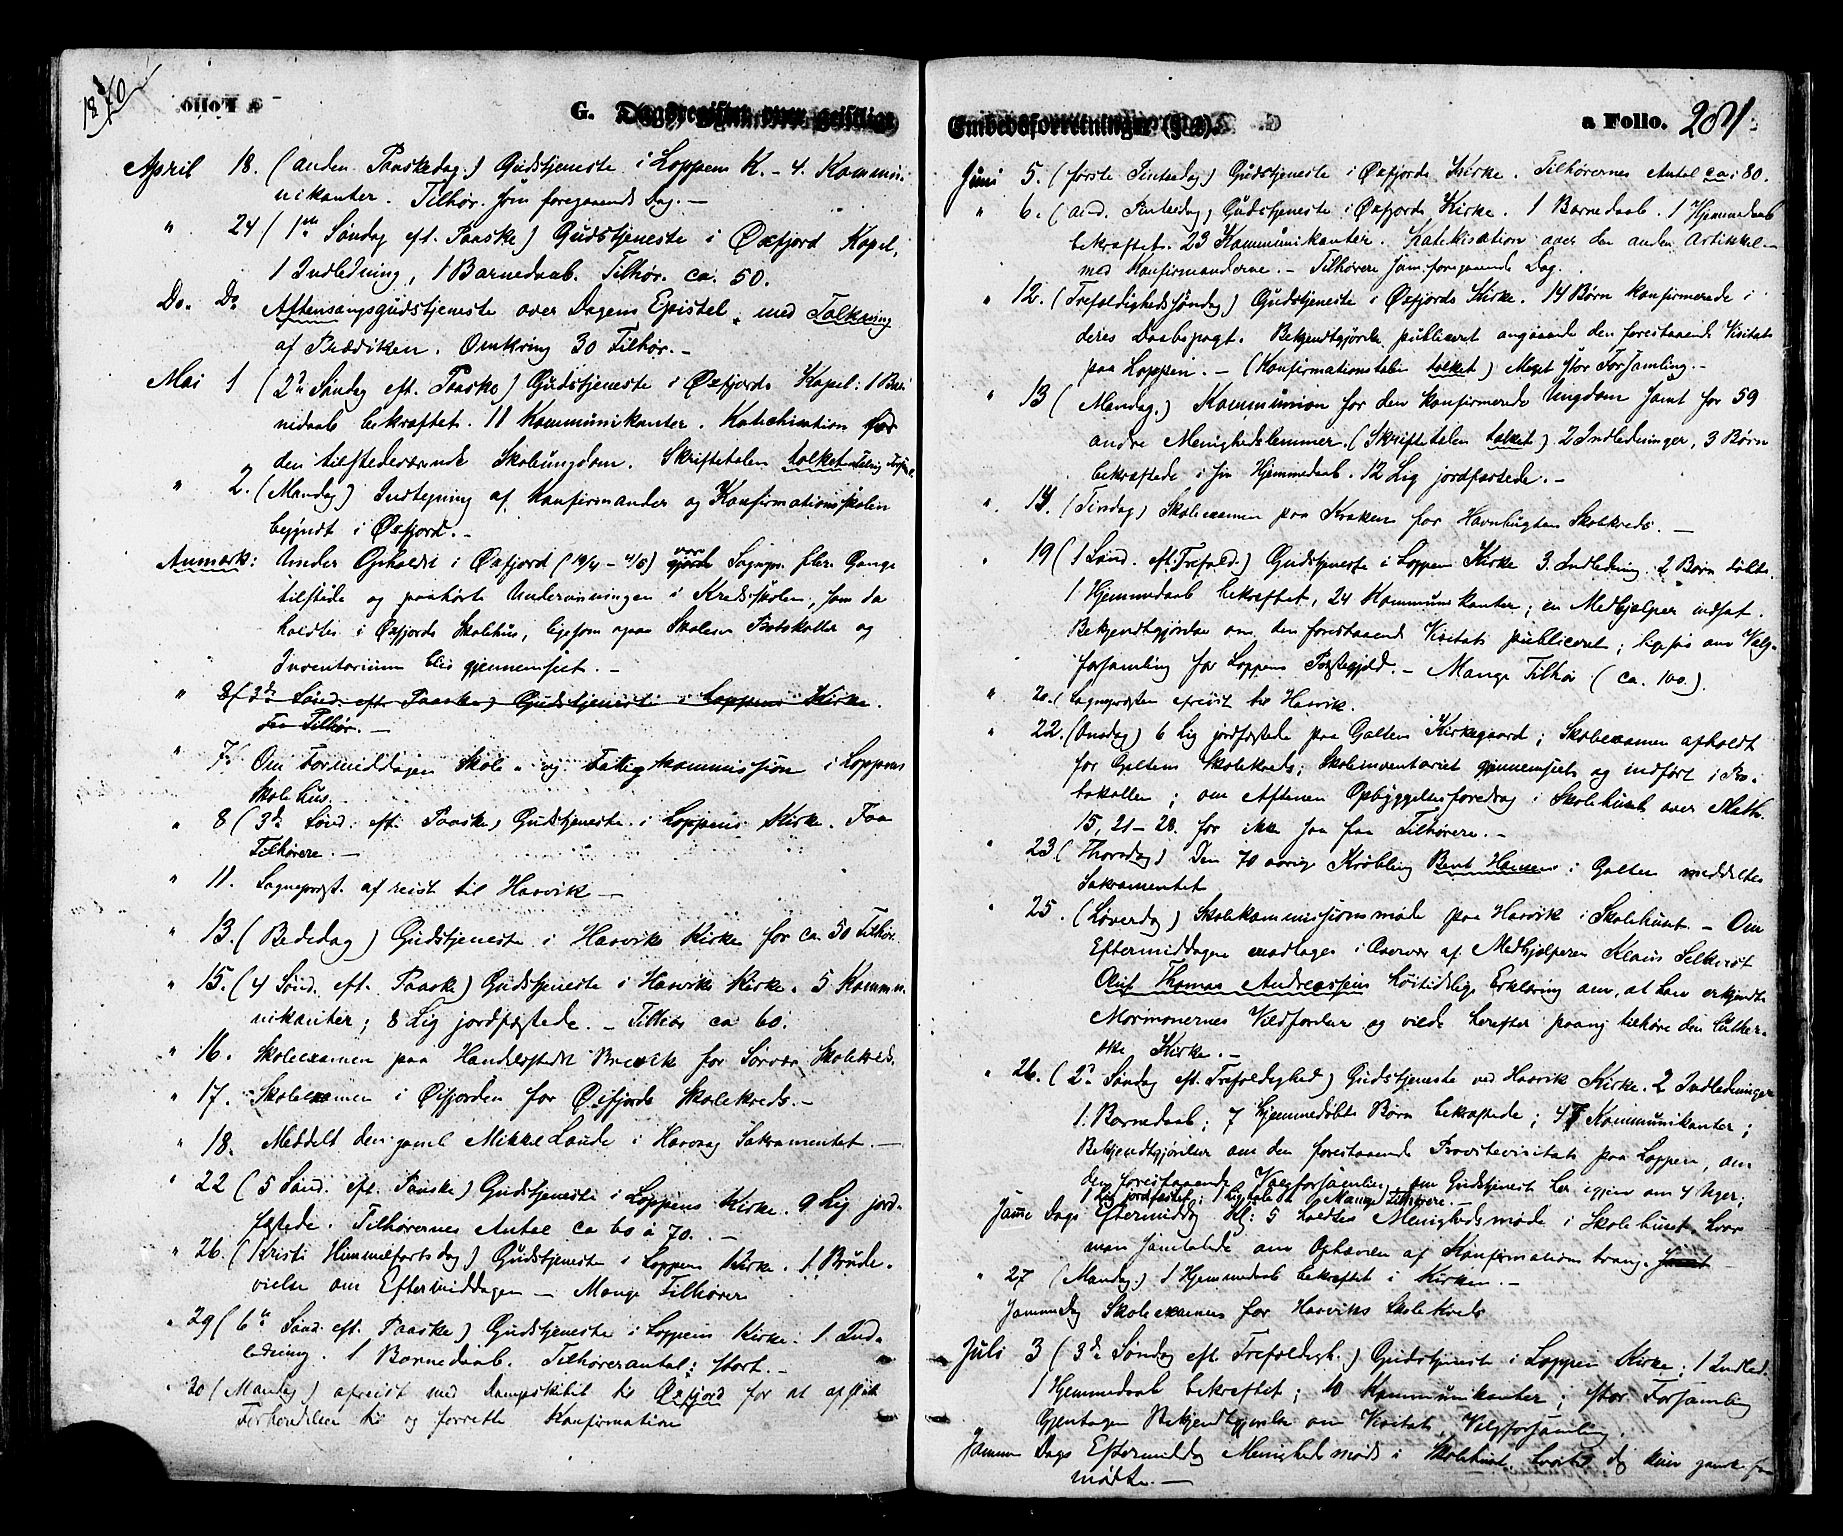 1870
G. Dagsregister over geistlige
April 18. (anden Paaskedag.) Gudstjeneste i Loppens K. - 4. Kommu-
nikanter. Tilhør. som foregaaende Dag. -
" 24 (1ste Søndag eft. Paaske) Gudstjeneste i Øxfjord Kapel,
1 Indledning, 1 Barnedaab. Tilhør. ca. 50.
Do. Do. Aftensangsgudstjeneste over Dagens Epistel, med Tolkning
af Prædiken. Omkring 30 Tilhør. -
Mai 1 (2den Søndag eft. Paaske) Gudstjeneste i Øxfjords Kapel: 1 Bar-
nedaab bekræftet. 11 Kommunikanter. Katechisation for
den tilstedeværende Skoleungdom. Skriftetalen tolket.
" 2. (Mandag) Indtegning af Konfirmander og Konfirmationsskolen
begyndt i Øxfjord. -
Anmærk: Under Opholdet i Øxfjord (19/4 - 4/5) var Sognepr. flere Gange
tilstede og paahørte Undervisningen i Kredsskolen, som da
holdtes i Øxfjords Skolehus, ligesom ogsaa Skolens Protokoller og
Inventarium blev gjennemseet. -
" 8 (3de Sønd. eft. Paaske) Gudstjeneste i Loppens Kirke.
Faa Tilhør. -
" 7. Om Formiddagen Skole- og Fattigkommission i Loppens
Skolehus.
" 8 (3de Sønd. eft. Paaske) Gudstjeneste i Loppens Kirke. Faa
Tilhørere. -
" 11. Sognepræst. afreist til Hasvik -
" 13. (Bededag) Gudstjeneste i Hasviks Kirke for ca. 50 Tilhør.
" 15. (4 Sønd. eft. Paaske) Gudstjeneste i Hasviks Kirke. 5 Kommu-
nikanter; 8 Lig jordfæstede. - Tilhør ca 60.
" 16. Skoleexamen paa Handelsstedet Brevik for Sørvær Skolekreds.
" 17. Skoleexamen i Øifjorden for Øifjords Skolekreds. -
" 18. Meddelt den gaml. Mikkel Laude i Havaag Sakramentet. -
" 22 (5 Sønd. eft. Paaske) Gudstjeneste i Loppens Kirke. 9 Lig jord-
fæstede. Tilhørernes Antal ca 60 à 70. -
" 26. (Kristi Himmelfartsdag) Gudstjeneste i Loppens Kirke. 1. Brude-
vielse om Eftermiddagen - Mange Tilhørere
" 29 (6te Sønd. eft. Paaske) Gudstjeneste i Loppens Kirke. 1. Ind-
ledning. 1 Barnedaab. Tilhørerantal: stort. -
" 30 (Mandag) afreist med Dampskibet til Øxfjord for at
Forberedelsen til og forrette Konfirmation
Embedsforretninger
a Folio. 281
Juni 5. (første Pintsedag.) Gudstjeneste i Øxfjords Kirke. Tilhørernes Antal ca: 80.
" 6. (and. Pintsedag) Gudstjeneste i Øxfjords Kirke. 1 Barnedaab. 1 Hjemmedaab
bekræftet. 23 Kommunikanter. Katekisation over den anden Artikkel
med Konfirmanderne. - Tilhørere som foregaaende Dag.
" 12. (Trefoldighedssøndag) Gudstjeneste i Øxfjords Kirke. 14 Børn konfirmerede i
deres Daabspagt. Bekjendtgjørelse publiceret angaaende den forestaaende Visitats
paa Loppen. - (Konfirmationstalen tolket) Meget stor Forsamling. -
" 13 (Mandag.) Kommunion for den konfirmerede Ungdom samt for 59
andre Menighedslemmer. (Skriftetalen tolket) 2 Indledninger, 3 Børn
bekræftede i sin Hjemmedaab. 12 Lig jordfæstede. -
" 14. (Tirsdag) Skoleexamen paa Kraken for Skolekreds. -
" 19 (1 Sønd. eft. Trefold.) Gudstjeneste i Loppens Kirke 3. Indledning. 2 Børn døbte.
1 Hjemmedaab bekræftet, 24 Kommunikanter; en Medhjælper indsat.
Bekjendtgjørelse om den forestaaende Visitats publiceret; ligesaa om Valg-
forsamling for Loppens Præstegjæld. - Mange Tilhør (ca. 100).
" 20. (Sognepræsten afreist til Hasvik.
" 22. (Onsdag) 6 Lig jordfæstede paa Galten Kirkegaard; Skoleexamen afholdt
for Galtens Skolekreds; Skoleinventariet gjennemseet og indført i Pro-
tokollen; om Aftenen Opbyggelsesforedrag i Skolehuset over Math.
15, 21-28. for ikke saa faa Tilhørere. -
" 23 (Thorsdag) Den 70 aarige Krøbling Bent Hansen i Galten meddeltes
Sakramentet
" 25. (Løverdag) Skolekommissionsmøde paa Hasvik i Skolehuset. - Om
Eftermiddagen modtages i Overvær af Medhjælperen Klaus
Oluf Thomas Andreassens høitidelige Erklæring om, at han erkjendte
Mormonernes Vildfarelser og vilde herefter paany tilhøre den luther-
ske Kirke. -
" 26. (2den Søndag eft. Trefoldighed) Gudstjeneste ved Hasvik Kirke. 2 Indledninger
1. Barnedaab; 7 hjemmedøbte Børn bekræftede; 47 Kommunikanter;
Bekjendtgjørelser om den forestaaende Provstevisitats paa Loppen, om
den forestaaende Valgforsamling, om Gudstjeneste her igjen om 4 Uger;
1 Lig jordfæstet; 1 Ligtale. Mange Tilhørere. -
Same Dags Eftermiddag Kl: 5 holdtes Menighedsmøde i Skolehuset, hvor
man samtalede om Ophævelsen af Konfirmationstvang.
" 27 (Mandag.) 1 Hjemmedaab bekræftet i Kirken. -
Samme Dag Skoleexamen for Hasviks Skolekreds
Juli 3 (3de Søndag eft. Trefoldigh.) Gudstjeneste i Loppen Kirke; 1 Indled.
1 Hjemmedaab bekræftet; 10 Kommunikanter; stor Forsamling
Gjentagen Bekjendtgjørelse om Visitats, Valgforsamling.
Samme Dags Eftermiddag Menighedsmøde i Skolehuset, hvortil dog kun ganske faa
mødte. -